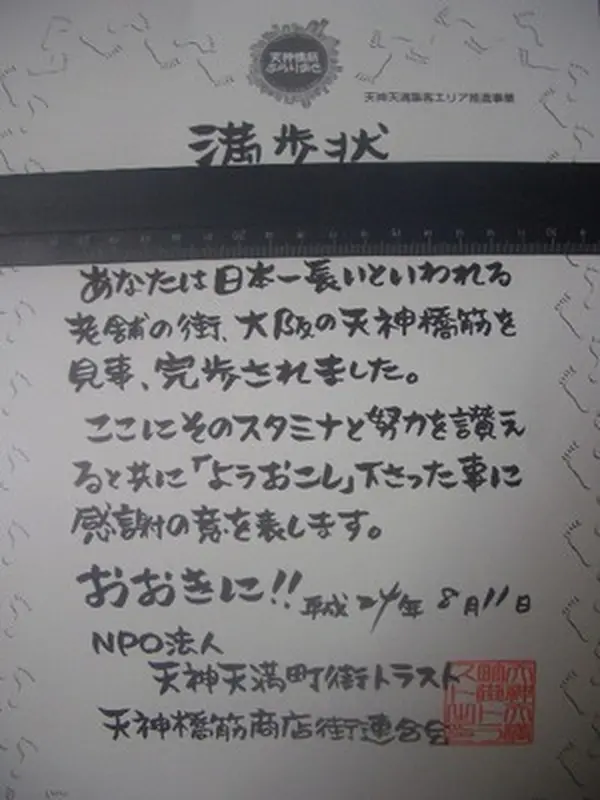 天神橋筋
ぶらりあさ
天神天満集客エリア推進事業
満歩状
あなたは日本一長いといわれる
老舗の街、大阪の天神橋筋を
見事、完歩されました。
ここにそのスタミナと努力を讃え
ると共に「ようおこし」下さった事に
感謝の意を表します。
おおきに!!
平成24年8月11日
NPO法人
天神天満町街トラスト
天神橋筋商店街連合会